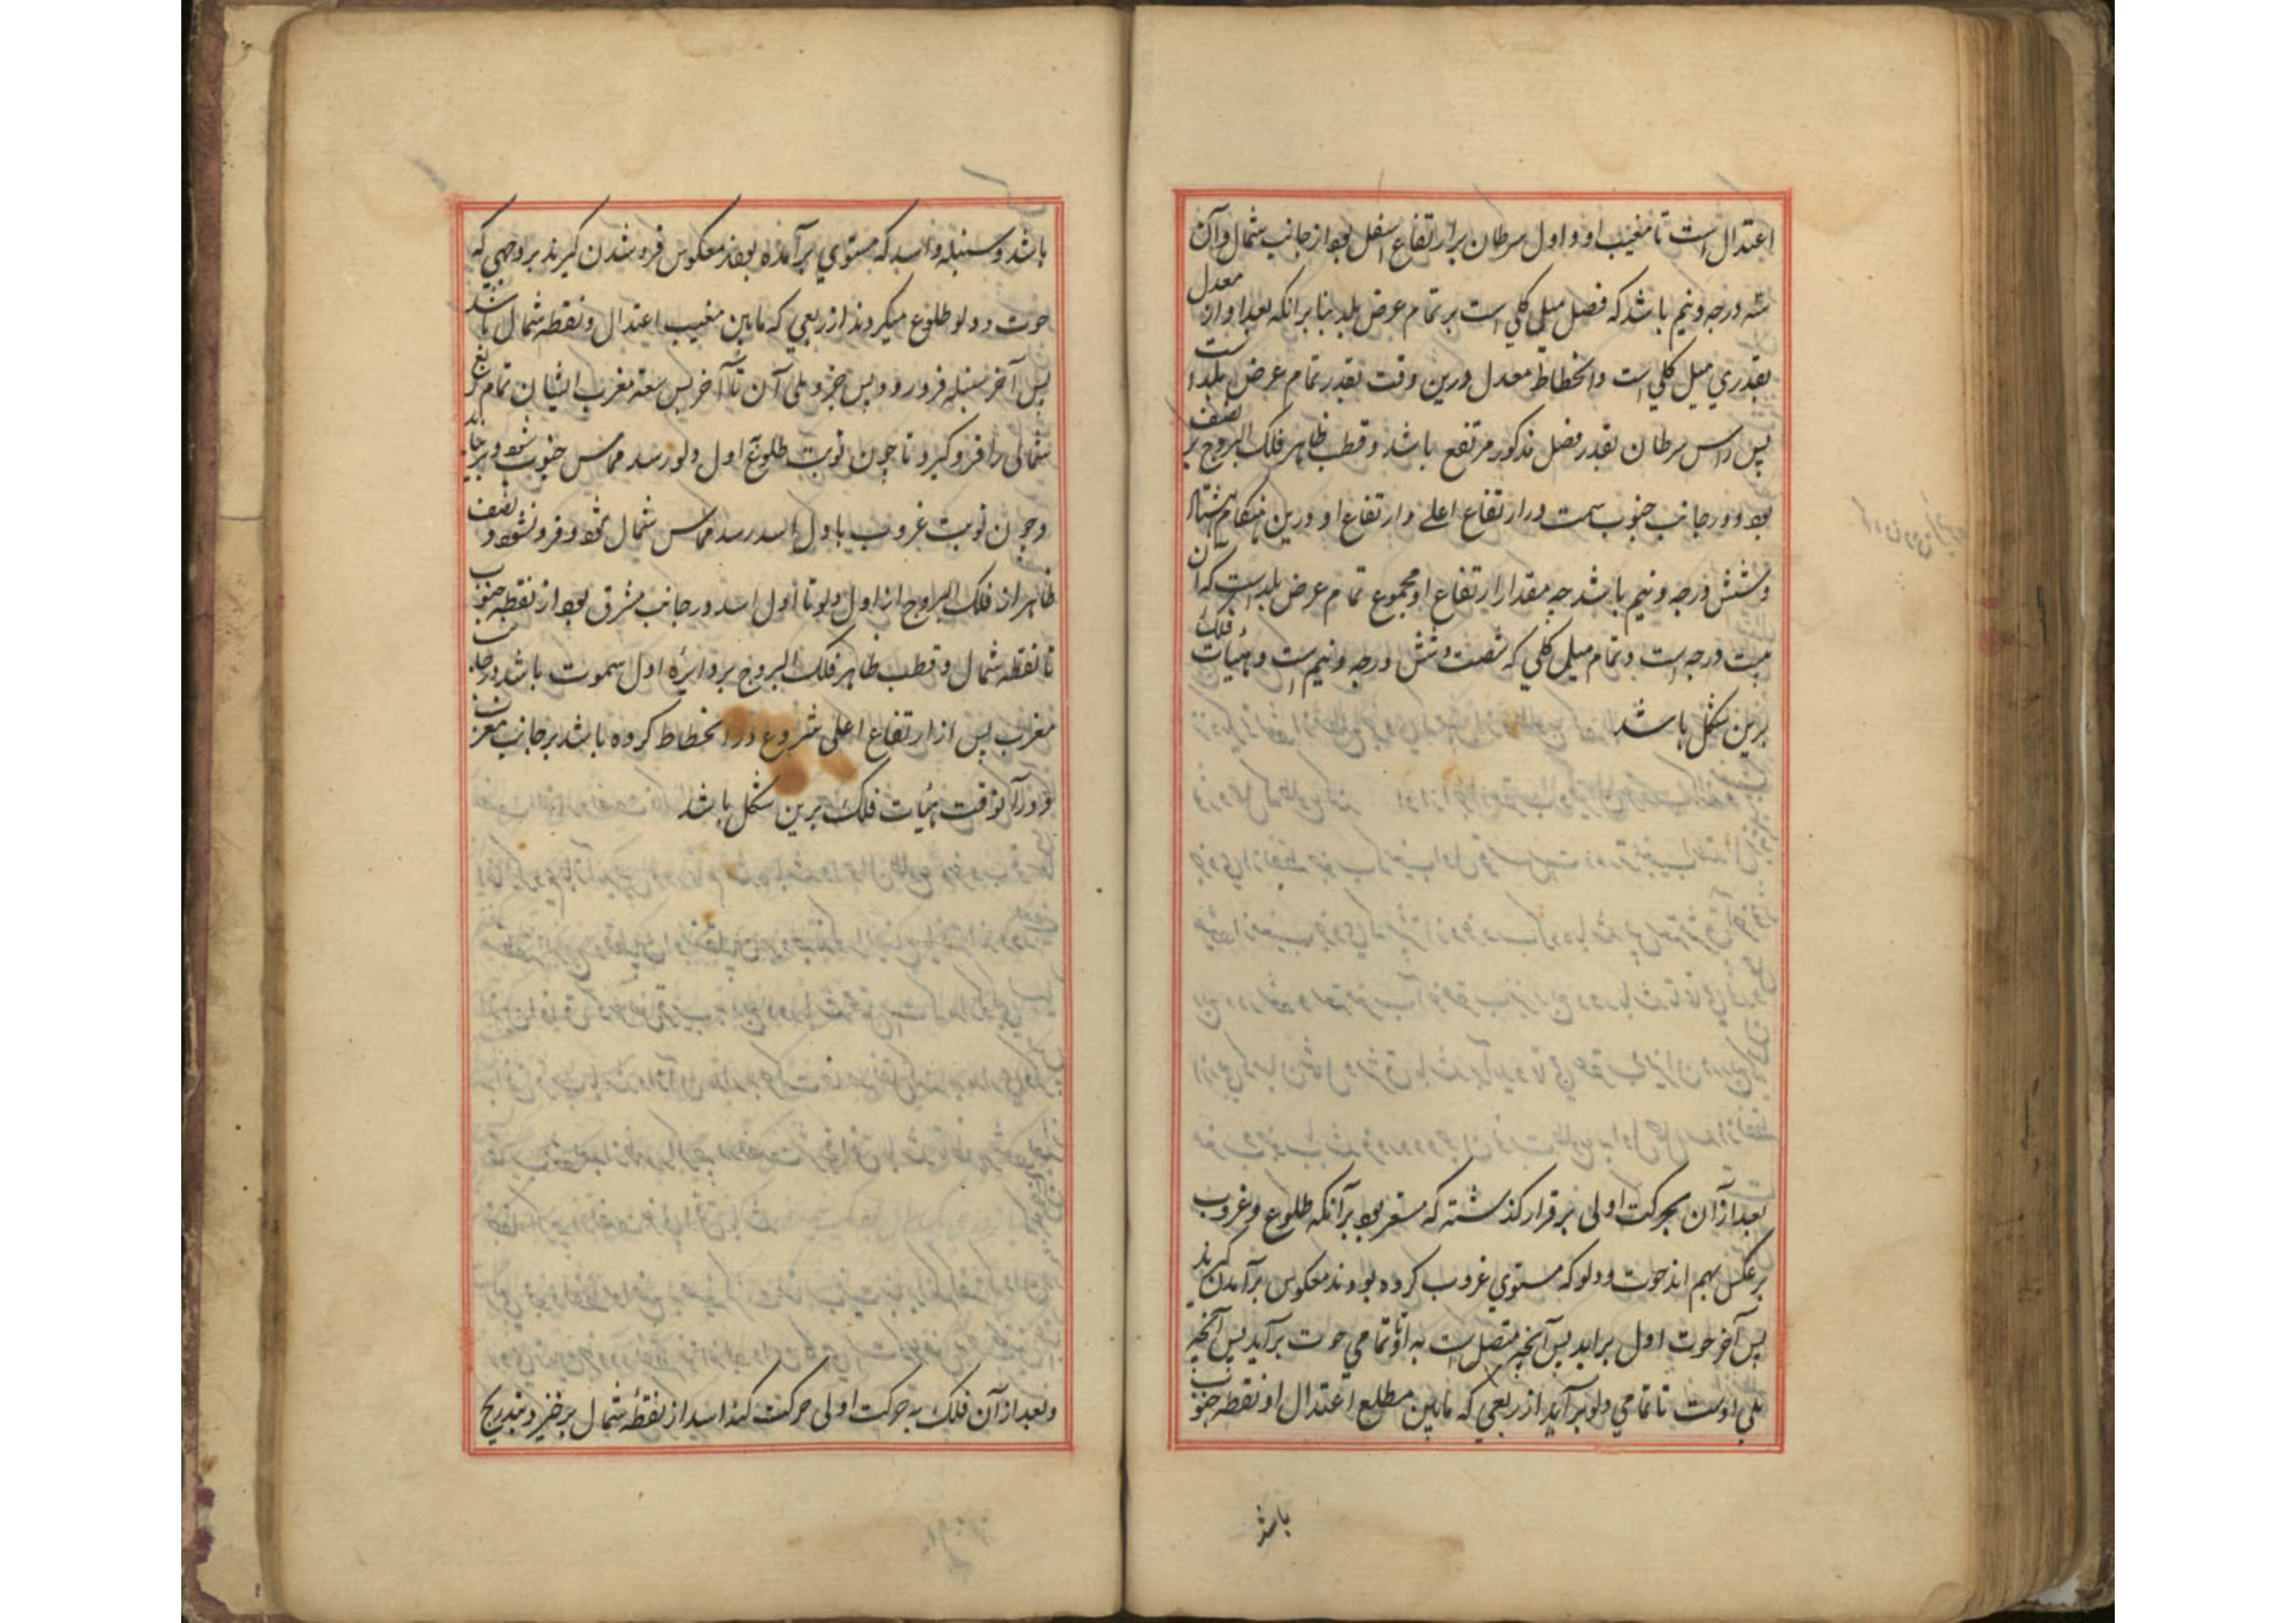 اعتدال است تا مغیب او و اول سرطان برارتفاع اسفل بود از جانب شمال و آن
سه درجه و نیم باشد که فضل میل کلي است بر تمام عرض بلد بنا برانکه بعد او از معدل
بقدري میل کلي است وانحطاط معدل درین وقت بقدر تمام عرض بلد است
پس راس سرطان بقدر فضل مذکور مرتفع باشد و قطب ظاهر فلک البروج بر نصف
بود و در جانب جنوب سمت در ارتفاع اعلے وارتفاع او درین هنکام هشتاد
و شش درجه و نیم باشد چه مقدار ارتفاع او مجموع تمام عرض بلد است که آن
بیست درجه است و تمام میل کلي که شصت و شش درجه و نیم است و هیأت فلک
برین شکل باشد
بعد ازان بحرکت اولی بر قرار کذشته که مستقر بود برآنکه طلوع و غروب
بر عکس بهم اند حوت و دلو که مستوي غروب کرده بودند معکوس برآمدن کیرند
پس آخر حوت اول براید پس آنچه متصل است به او تا تمامي حوت برآید پس آنچه
یلي اوست تا تمامي دلو برآید از ربعي که مابین مطلع اعتدال او نقطه جنوب
باشد
باشد و سنبله و اسد که مستوي برآمده بودند معکوس فرو شدن کیرند بر وجهي که
حوت و دلو طلوع میکردند از ربعي که مابین مغیب اعتدال و نقطه شمال باشد
پس آخر سنبله فرو رود پس جزو یلی آن تا آخر پس سعة مغرب ایشان تمام ربع
شمالی را فرو کیرد تا چون نوبت طلوع اول دلو رسد مماس جنوب شود و بر نیاید
و چون نوبت غروب باول اسد رسد مماس شمال شود و فرو نشود و نصف
ظاهر از فلک البروج از اول دلو تا اول اسد در جانب مشرق بود از نقطه جنوب
تا نقطه شمال و قطب ظاهر فلک البروج بر دایره اول سموت باشد در جانب
مغرب پس از ارتفاع اعلی شروع در انحطاط کرده باشد بر جانب مغرب
و در آنوقت هیأت فلک برین شکل باشد
و بعد ازان فلک به حرکت اولی حرکت کند اسد از نقطه شمال بر خیزد و بتدریج